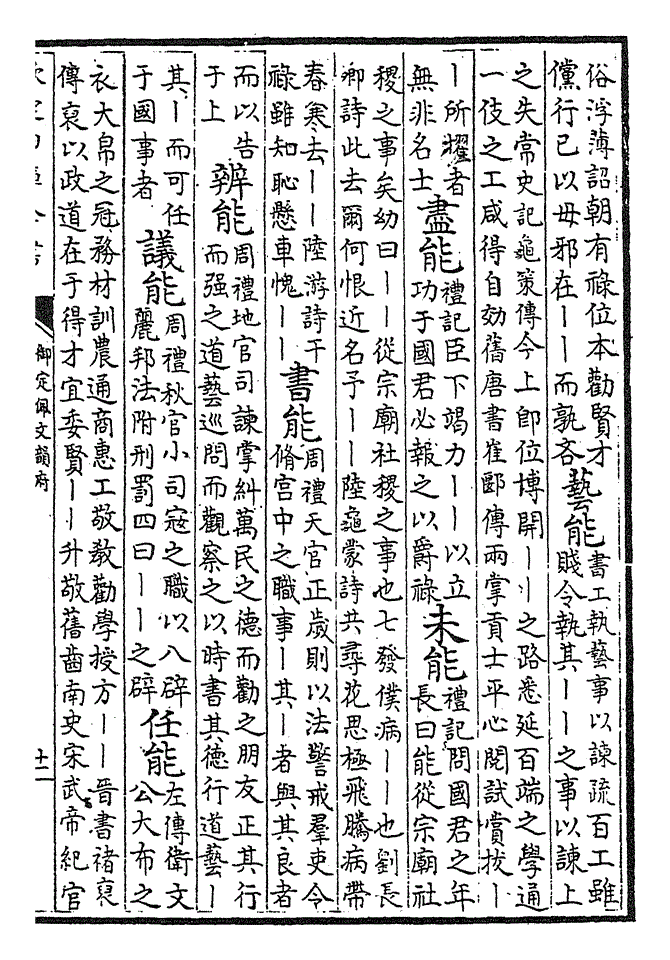 俗浮薄詔朝有祿位本勸賢才
黨行已以毋邪在丨丨而孰吝
藝能
書工執藝事以諫疏百工雖
賤令執其丨丨之事以諫上
之失常史記龜策傳今上卽位博開丨丨之路悉延百端之學通
一伎之工咸得自効舊唐書崔郾傳兩掌貢士平心閱試賞拔丨
丨所擢者
無非名士
盡能
禮記臣下竭力丨丨以立
功于國君必報之以爵祿
未能
禮記問國君之年
長曰能從宗廟社
稷之事矣幼曰丨丨從宗廟社稷之事也七發僕病丨丨也劉長
卿詩此去爾何恨近名予丨丨陸龜蒙詩共尋花思極飛騰病帶
春寒去丨丨陸游詩干
祿雖知恥懸車愧丨丨
書能
周禮天官正歲則以法警戒羣吏令
脩宮中之職事丨其丨者與其良者
而以告
于上
辨能
周禮地官司諫掌糾萬民之德而勸之朋友正其行
而强之道藝巡問而觀察之以時書其德行道藝丨
其丨而可任
于國事者
議能
周禮秋官小司寇之職以八辟
麗邦法附刑罰四曰丨丨之辟
任能
左傳衛文
公大布之
衣大帛之冠務材訓農通商惠工敬教勸學授方丨丨晉書褚裒
傳裒以政道在于得才宜委賢丨丨升敬舊齒南史宋武帝紀官
御定佩文韻府